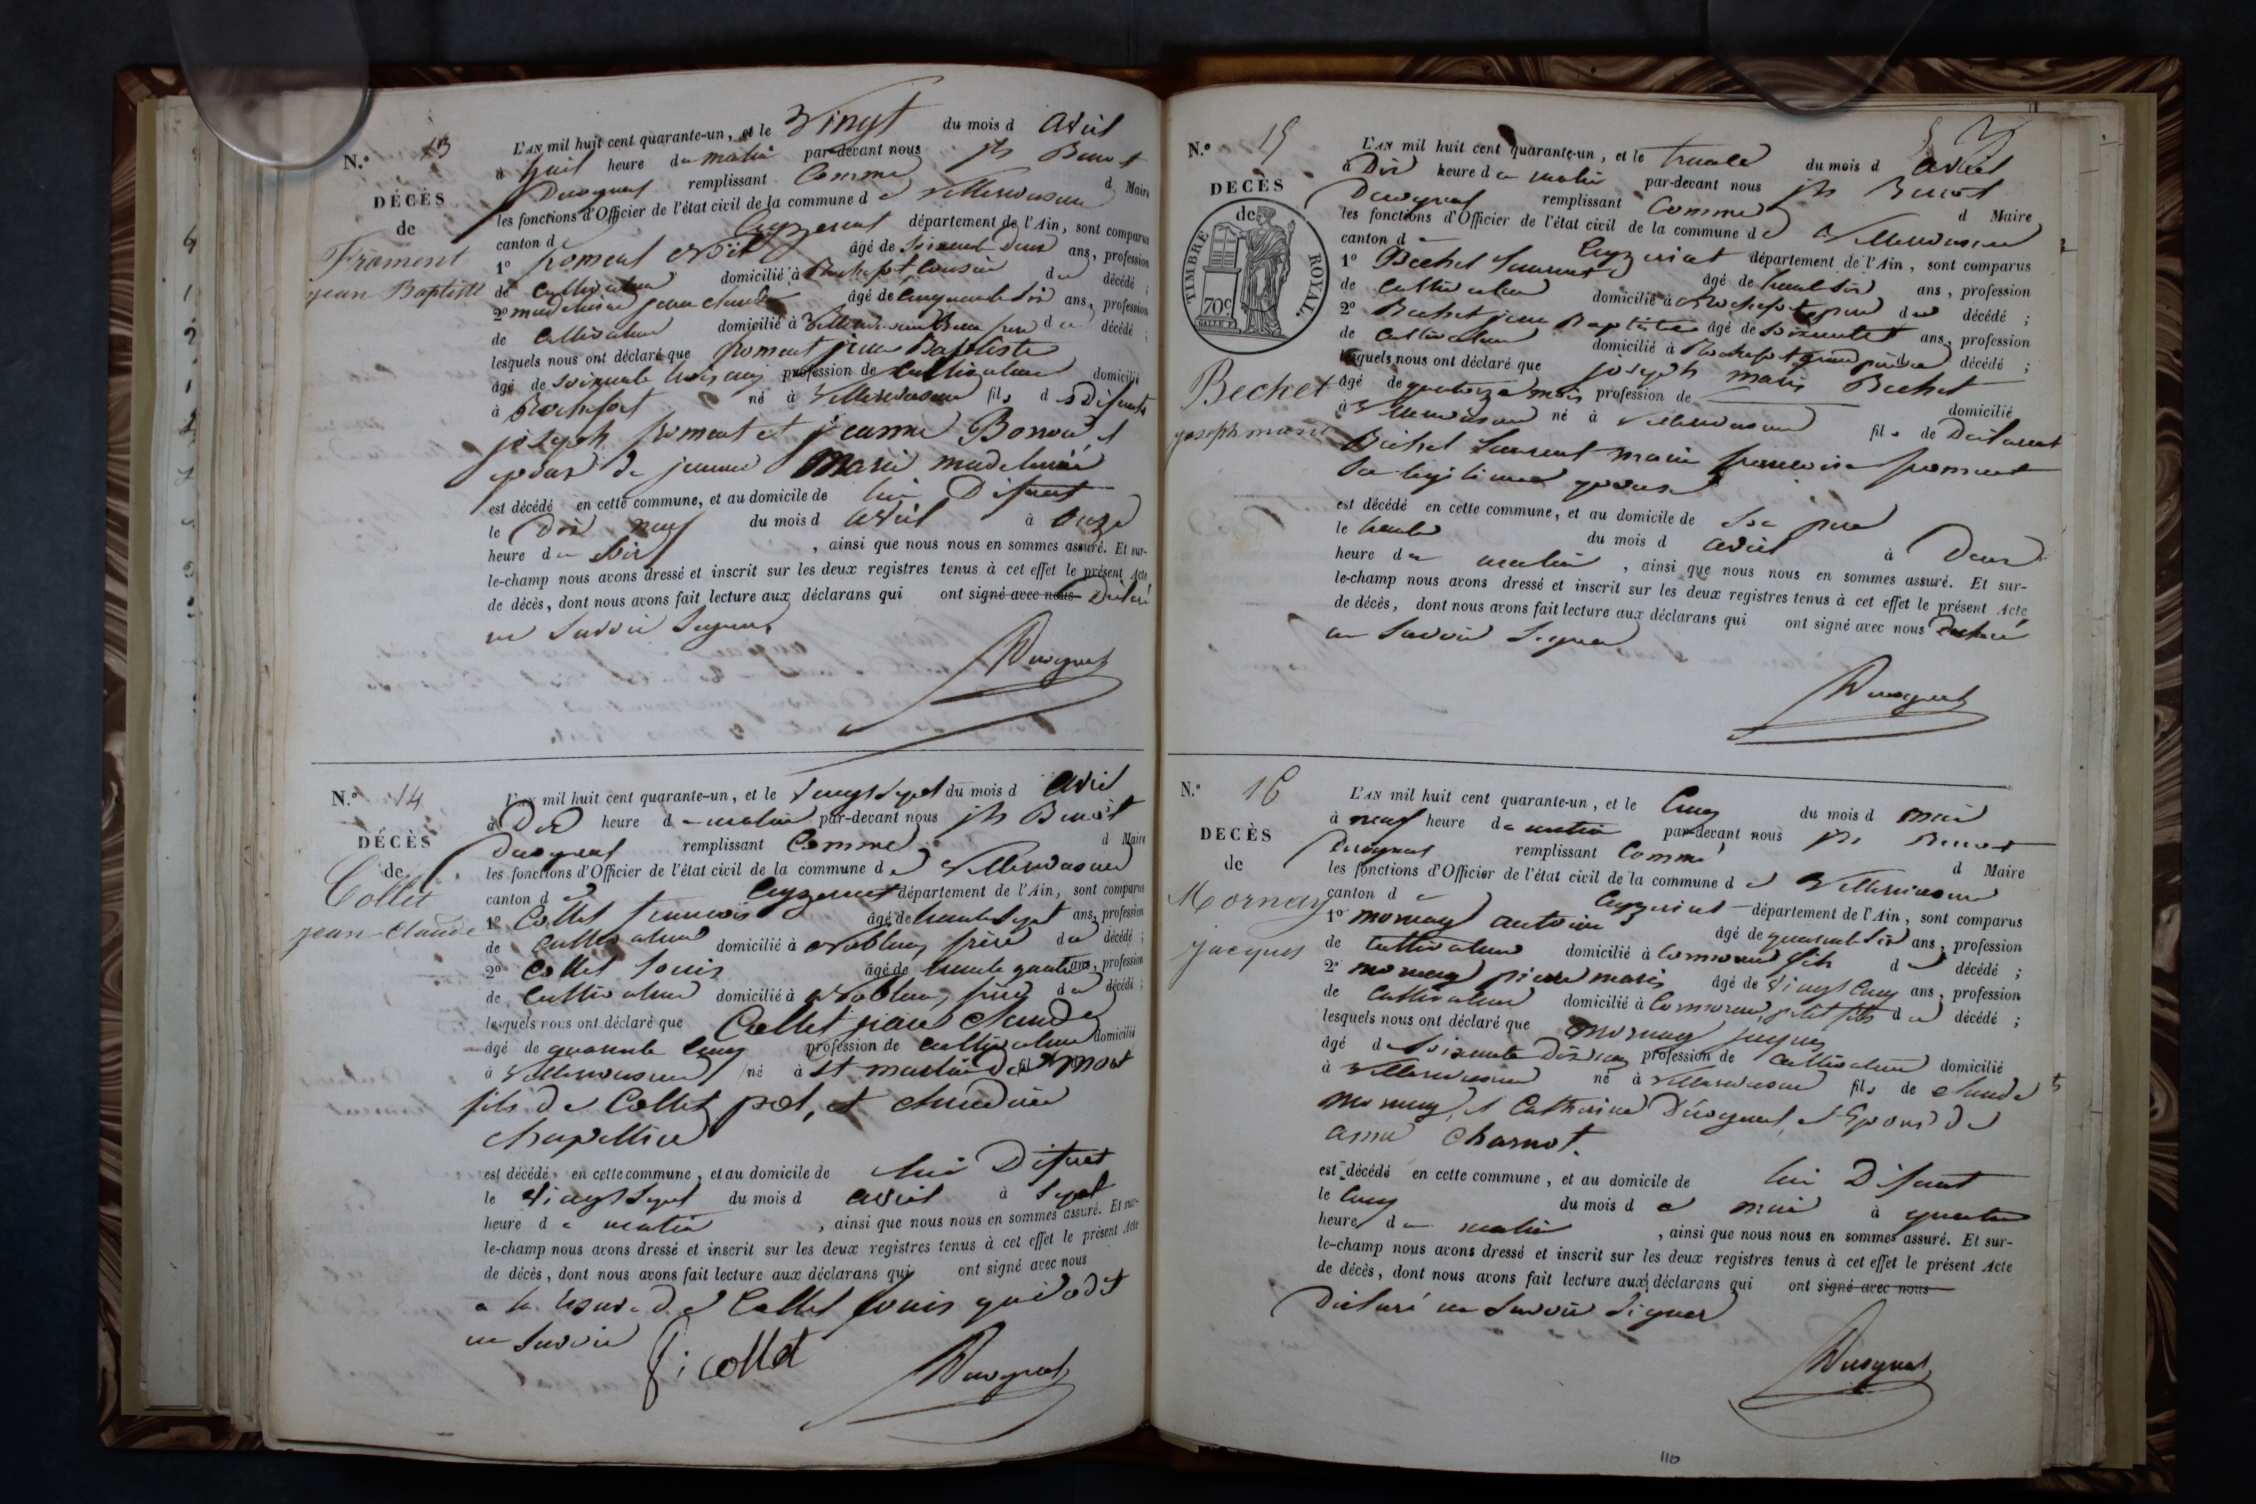 N.° 13
DÉCÈS
de
Froment
jean Baptiste
L'AN mil huit cent quarante-un, et le Vingt du mois d avril
à huit heure du matin par-devant nous jh Benoit
Ducognat remplissant Comme d Maire
les fonctions d'Officier de l'état civil de la commune de Villereversure
canton de Ceyzeriat département de l'Ain, sont comparus
1° froment âgé de soixante deux ans, profession
de cultivateur domicilié à Rochefort, cousin du décédé ;
2° jean claude âgé de cinquante six ans, profession
de cultivateur domicilié à Villereversure Beau frere du décédé ;
lesquels nous ont déclaré que froment jean Baptiste
âgé de soixante trois ans profession de cultivateur domicilié
à Rochefort né à Villereversure fils des Defunts
joseph froment et jeanne et
epoux de jeanne Marie
est décédé en cette commune, et au domicile de lui Defunt
le Dix neuf du mois d avril à onze
heure du soir, ainsi que nous nous en sommes assuré. Et sur-
le-champ nous avons dressé et inscrit sur les deux registres tenus à cet effet le présent Acte
de décès, dont nous avons fait lecture aux déclarans qui ont signé avec nous Declaré
ne savoir signer
Ducognat
N.° 14
DÉCÈS
de
Collet
jean-Claude
L'AN mil huit cent quarante-un, et le vingt sept du mois d avril
à Dix heure du matin par-devant nous jh Benoit
Ducognat remplissant Comme d Maire
les fonctions d'Officier de l'état civil de la commune de Villereversure
canton de Ceyzeriat département de l'Ain, sont comparus
1° Collet francois âgé de trente sept ans, profession
de cultivateur domicilié à Noblens, frère du décédé ;
2° Collet Louis âgé de trente quatre ans, profession
de cultivateur domicilié à Noblens, frère du décédé ;
lesquels nous ont déclaré que Collet jean Claude
âgé de quarante cinq profession de cultivateur domicilié
à Villereversure né à St martin du mont
fils de Collet et Claudine
est décédé en cette commune, et au domicile de lui Defunt
le vingt sept du mois d avril à sept
heure du matin, ainsi que nous nous en sommes assuré. Et sur-
le-champ nous avons dressé et inscrit sur les deux registres tenus à cet effet le présent Acte
de décès, dont nous avons fait lecture aux déclarans qui ont signé avec nous
a la de Collet Louis qui a dit
ne savoir
f. collet
Ducognat
N.° 15
DÉCÈS
de
TIMBRE ROYAL.
70c
Bechet
joseph marie
L'AN mil huit cent quarante-un, et le trente du mois d avril
à Dix heure du matin par-devant nous jh Benoit
Ducognat remplissant Comme d Maire
les fonctions d'Officier de l'état civil de la commune de Villereversure
canton de Ceyzeriat département de l'Ain, sont comparus
1° Bechet Laurent âgé de trente six ans, profession
de cultivateur domicilié à Rochefort pere du décédé ;
2° Bechet jean Baptiste âgé de soixante et ans, profession
de cultivateur domicilié à Rochefort grand père du décédé ;
lesquels nous ont déclaré que joseph marie Bechet
âgé de quatorze mois profession de domicilié
à Villereversure né à Villereversure fils de
Bechet Laurent marie francoise froment
sa legitime epouse
est décédé en cette commune, et au domicile de son pere
le trente du mois d avril à Deux
heure du matin, ainsi que nous nous en sommes assuré. Et sur-
le-champ nous avons dressé et inscrit sur les deux registres tenus à cet effet le présent Acte
de décès, dont nous avons fait lecture aux déclarans qui ont signé avec nous Declaré
ne savoir signer
Ducognat
N.° 16
DÉCÈS
de
Mornay
jacques
L'AN mil huit cent quarante-un, et le Cinq du mois d mai
à neuf heure du matin par-devant nous jh Benoit
Ducognat remplissant Comme d Maire
les fonctions d'Officier de l'état civil de la commune de Villereversure
canton de Ceyzeriat département de l'Ain, sont comparus
1° mornay antoine âgé de quarante six ans, profession
de cultivateur domicilié à fils du décédé ;
2° mornay pierre marie âgé de vingt cinq ans, profession
de cultivateur domicilié à petit fils du décédé ;
lesquels nous ont déclaré que mornay jacques
âgé de soixante Dix ans profession de cultivateur domicilié
à Villereversure né à Villereversure fils de claude
mornay, et Catherine Ducognat, et Epoux de
anne Charnot.
est décédé en cette commune, et au domicile de lui Defunt
le Cinq du mois de mai à quatre
heure du matin, ainsi que nous nous en sommes assuré. Et sur-
le-champ nous avons dressé et inscrit sur les deux registres tenus à cet effet le présent Acte
de décès, dont nous avons fait lecture aux déclarans qui ont signé avec nous
Declaré ne savoir signer
Ducognat
110